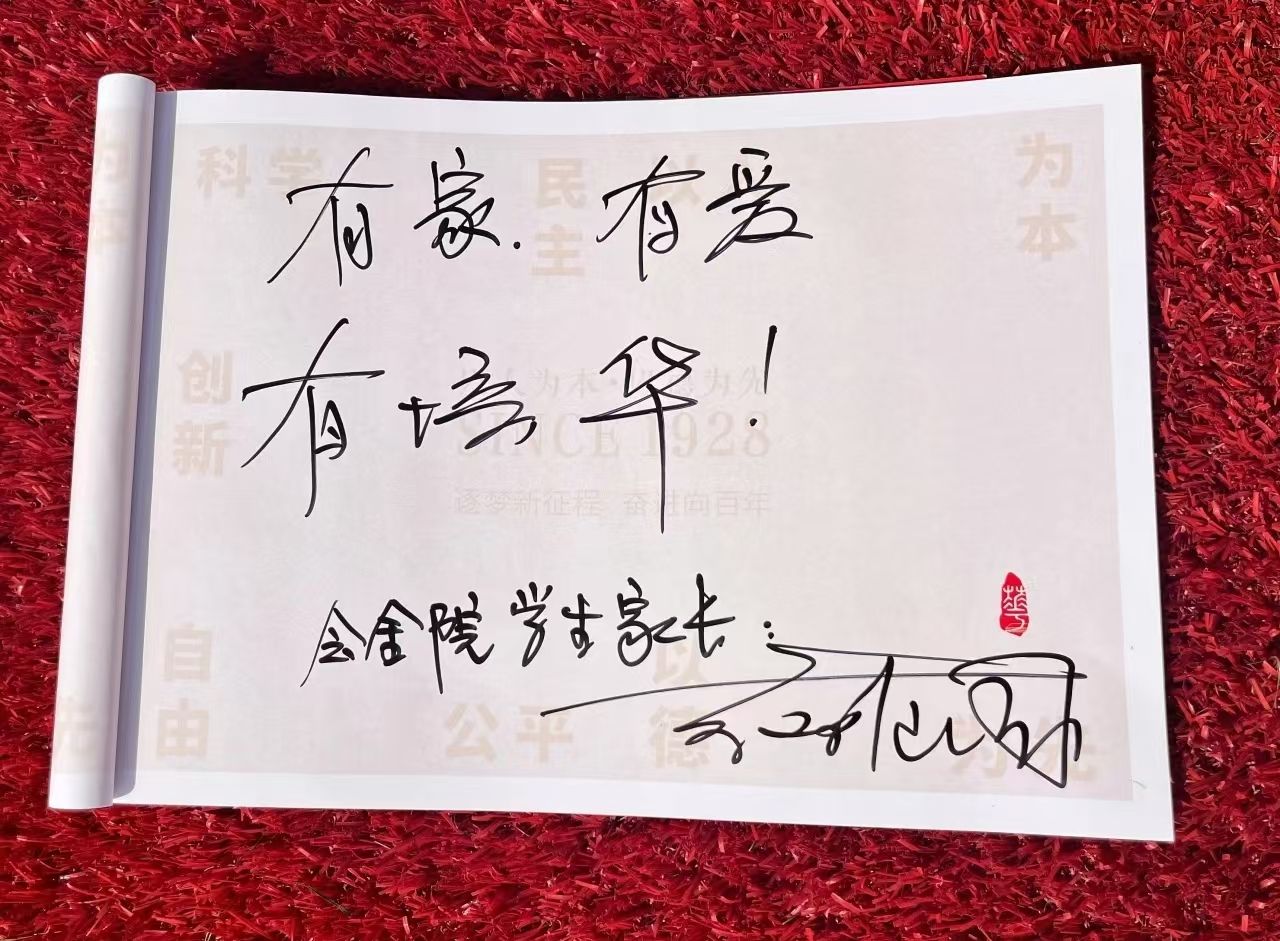 科学 民主 以 为本
有家.有爱
有培华！
创新
人为本 为先
SINCE 1928
逐梦新征程 奋进向百年
会金院学生家长：
華
自由 公平 以德 为先